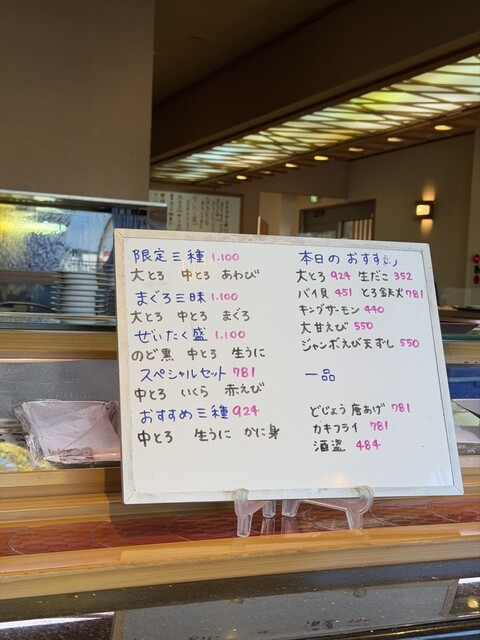 限定三種 1.100
大とろ 中とろ あわび
まぐろ三昧 1.100
大とろ 中とろ まぐろ
ぜいたく盛 1.100
のど黒 中とろ 生うに
スペシャルセット 781
中とろ いくら 赤えび
おすすめ三種 924
中とろ 生うに かに身
本日のおすすめ
大とろ 924 生だこ 352
バイ貝 451 とろ鉄火 781
キングサーモン 440
大甘えび 550
ジャンボえび天ずし 550
一品
どじょう唐あげ 781
カキフライ 781
酒盗 484